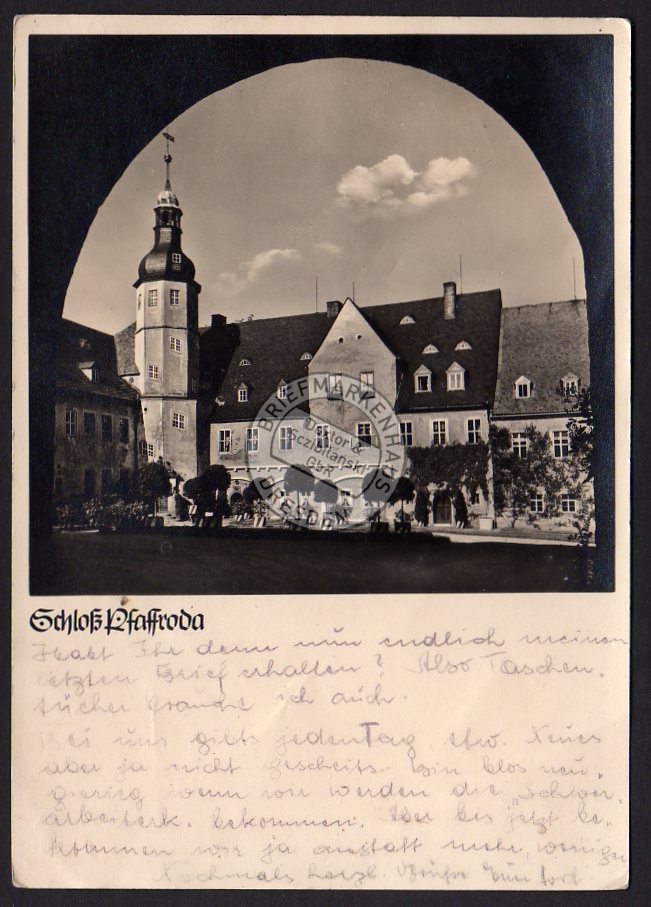 BRIEFMARKENHAUS
Doktor &
Sczibilanski
GbR
DRESDEN
Schloß Pfaffroda
Habt Ihr denn nun endlich meinen
letzten Brief erhalten? Also Taschen-
tücher brauche ich auch.
Bei uns gibts jeden Tag etw. Neues
aber ja nicht gescheits. Bin blos neu-
gierig wenn wir werden die „Schwer-
arbeiterk. bekommen. Aber bis jetzt be-
kommen wir ja anstatt mehr, weniger
Nochmals herzl. Grüße Euer